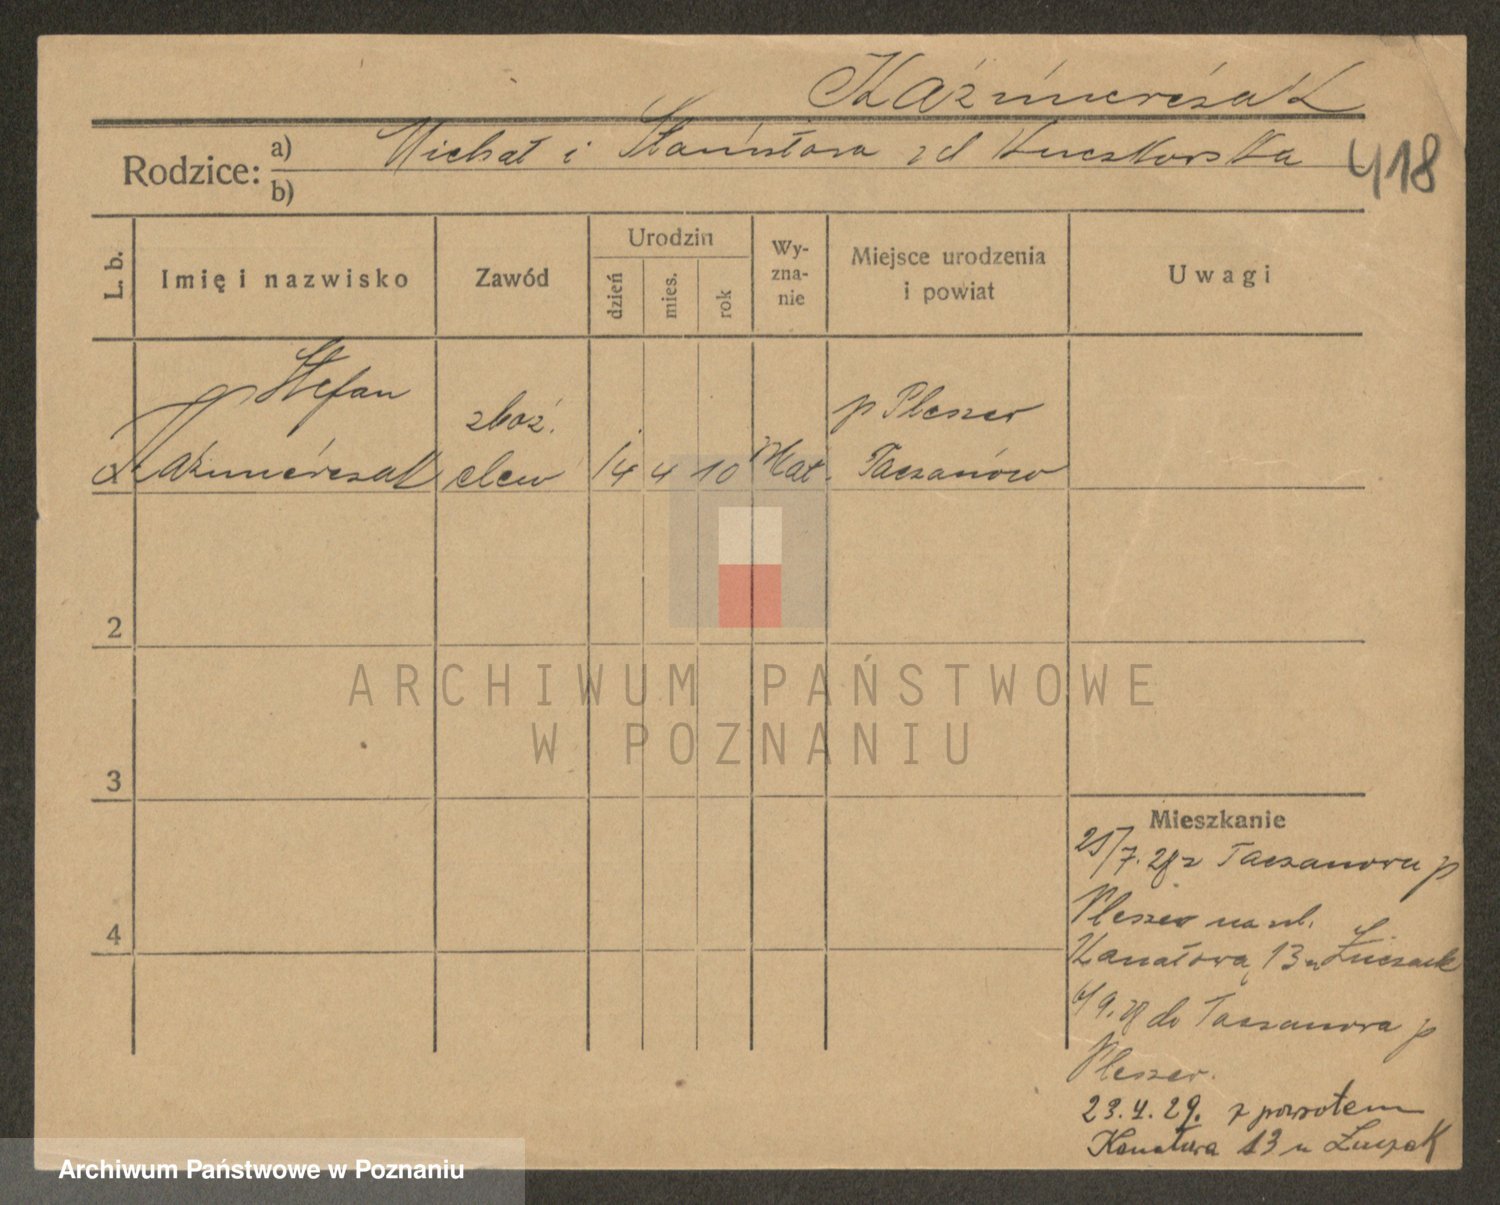 Kaźmierczak
Rodzice: a) Michał i Stanisława zd Kuczkowska
b)
418
L. b.
Imię i nazwisko
Zawód
Urodzin
dzień
mies.
rok
Wy-
zna-
nie
Miejsce urodzenia
i powiat
Uwagi
Stefan
Kaźmierczak
zboż.
elew
14 4 10
Kat.
p Pleszew
Taczanów
2
3
4
ARCHIWUM PAŃSTWOWE
W POZNANIU
Mieszkanie
25/7. 28 z Taczanowa p
Pleszew na ul.
Kanałową 13 u Łuczak
6/9. 28 do Taczanowa p
Pleszew.
23.4.29. z powrotem
Kanałowa 13 u Łuczak
Archiwum Państwowe w Poznaniu